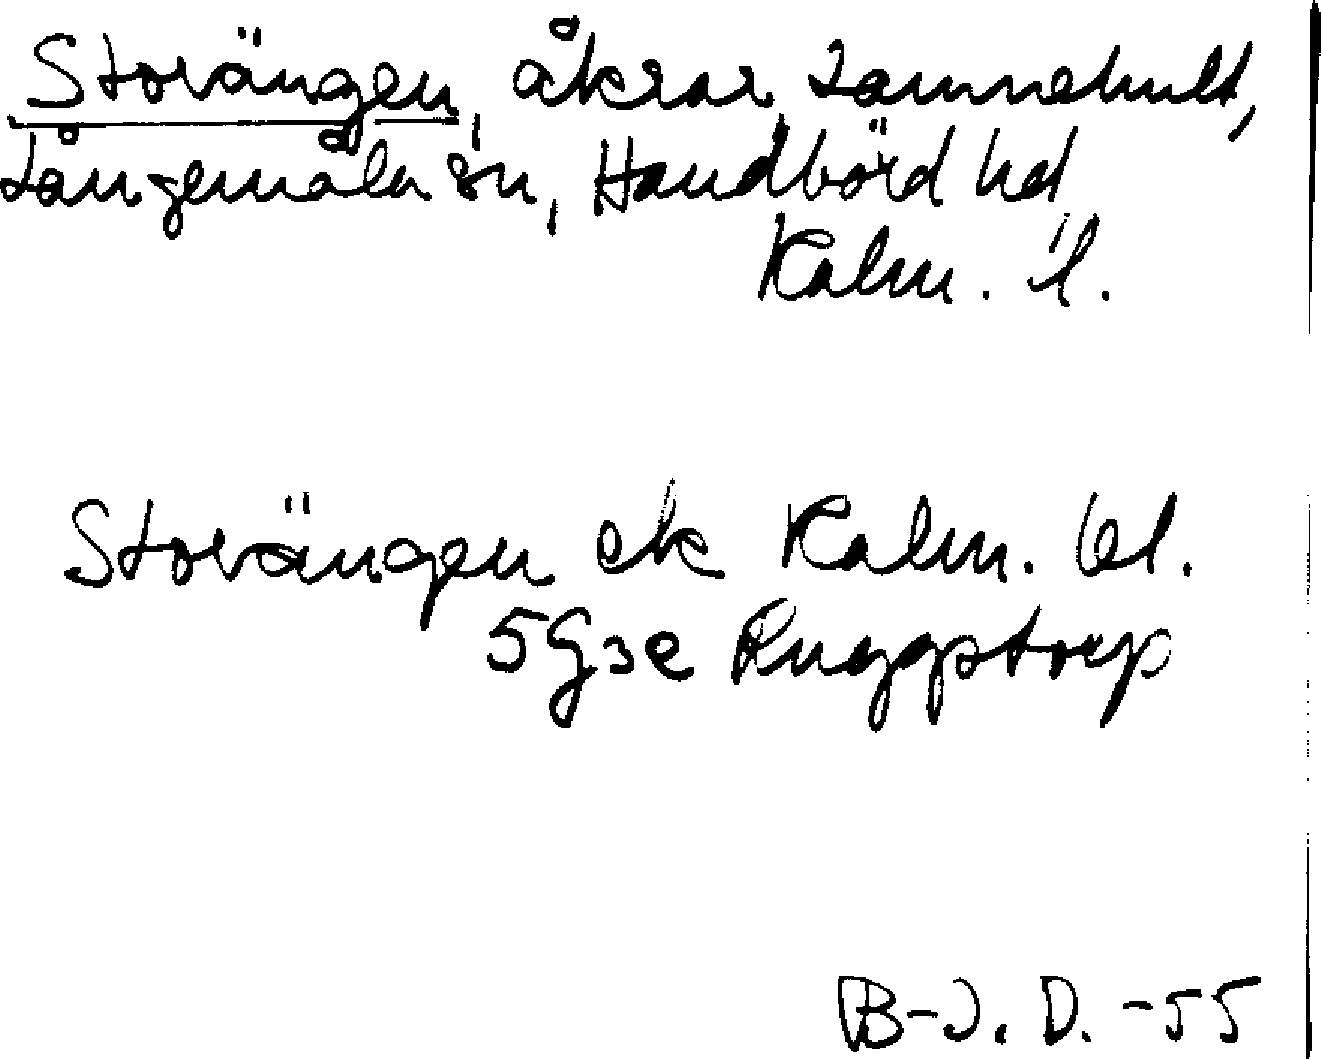 Storängen, åkrar Lannehult,
Långemåla sn, Handbörd hd
Kalm. l.
Storängen ek Kalm. bl.
5G3e Ruggstorp
B-J. D. -55